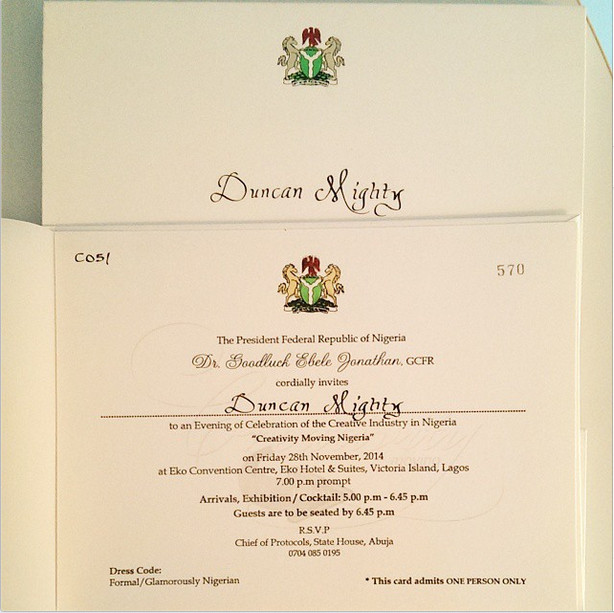 Duncan Mighty
COS/
570
The President Federal Republic of Nigeria
Dr. Goodluck Ebele Jonathan, GCFR
cordially invites
Duncan Mighty
to an Evening of Celebration of the Creative Industry in Nigeria
"Creativity Moving Nigeria"
on Friday 28th November, 2014
at Eko Convention Centre, Eko Hotel & Suites, Victoria Island, Lagos
7.00 p.m prompt
Arrivals, Exhibition/Cocktail: 5.00 p.m - 6.45 p.m
Guests are to be seated by 6.45 p.m
R.S.V.P
Chief of Protocols, State House, Abuja
0704 085 0195
Dress Code:
Formal/Glamorously Nigerian
* This card admits ONE PERSON ONLY